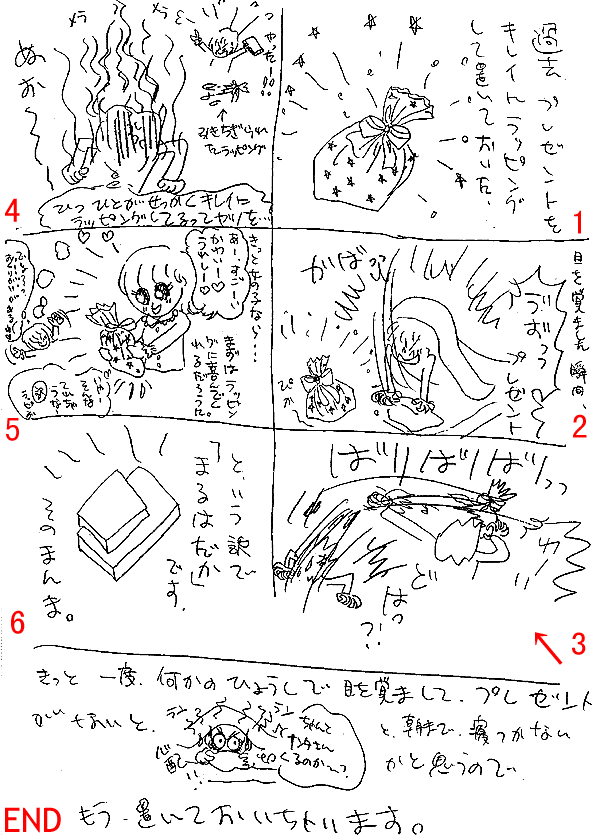 過去、プレゼントを
キレイにラッピング
して置いておいた。
1
目を覚ました瞬間、
うおっっ
プレゼント
がばっ
ぴか
2
ばりばりばりっっ
どは
っ?!
3
つやったー!!
メラ
メラ
ぬお〜
↑
ひきちぎられ
たラッピング
ひっひとがせっかくキレイに
ラッピングしてるってゆーのを…
4
きっと女の子なら…
あー、すごーい
かわいー♡
うれしー♡
まずはラッピン
グに喜んでく
れるだろうに。
5
と、いう訳で
「まるはだか」
です。
そのまんま。
6
きっと一度、何かのひょうしで目を覚まして、プレゼント
がないと、
心配
ちゃんと
サンタさん
くるのか〜?
と、朝まで寝つかない
かと思うので
END
もう、置いておいちゃいます。